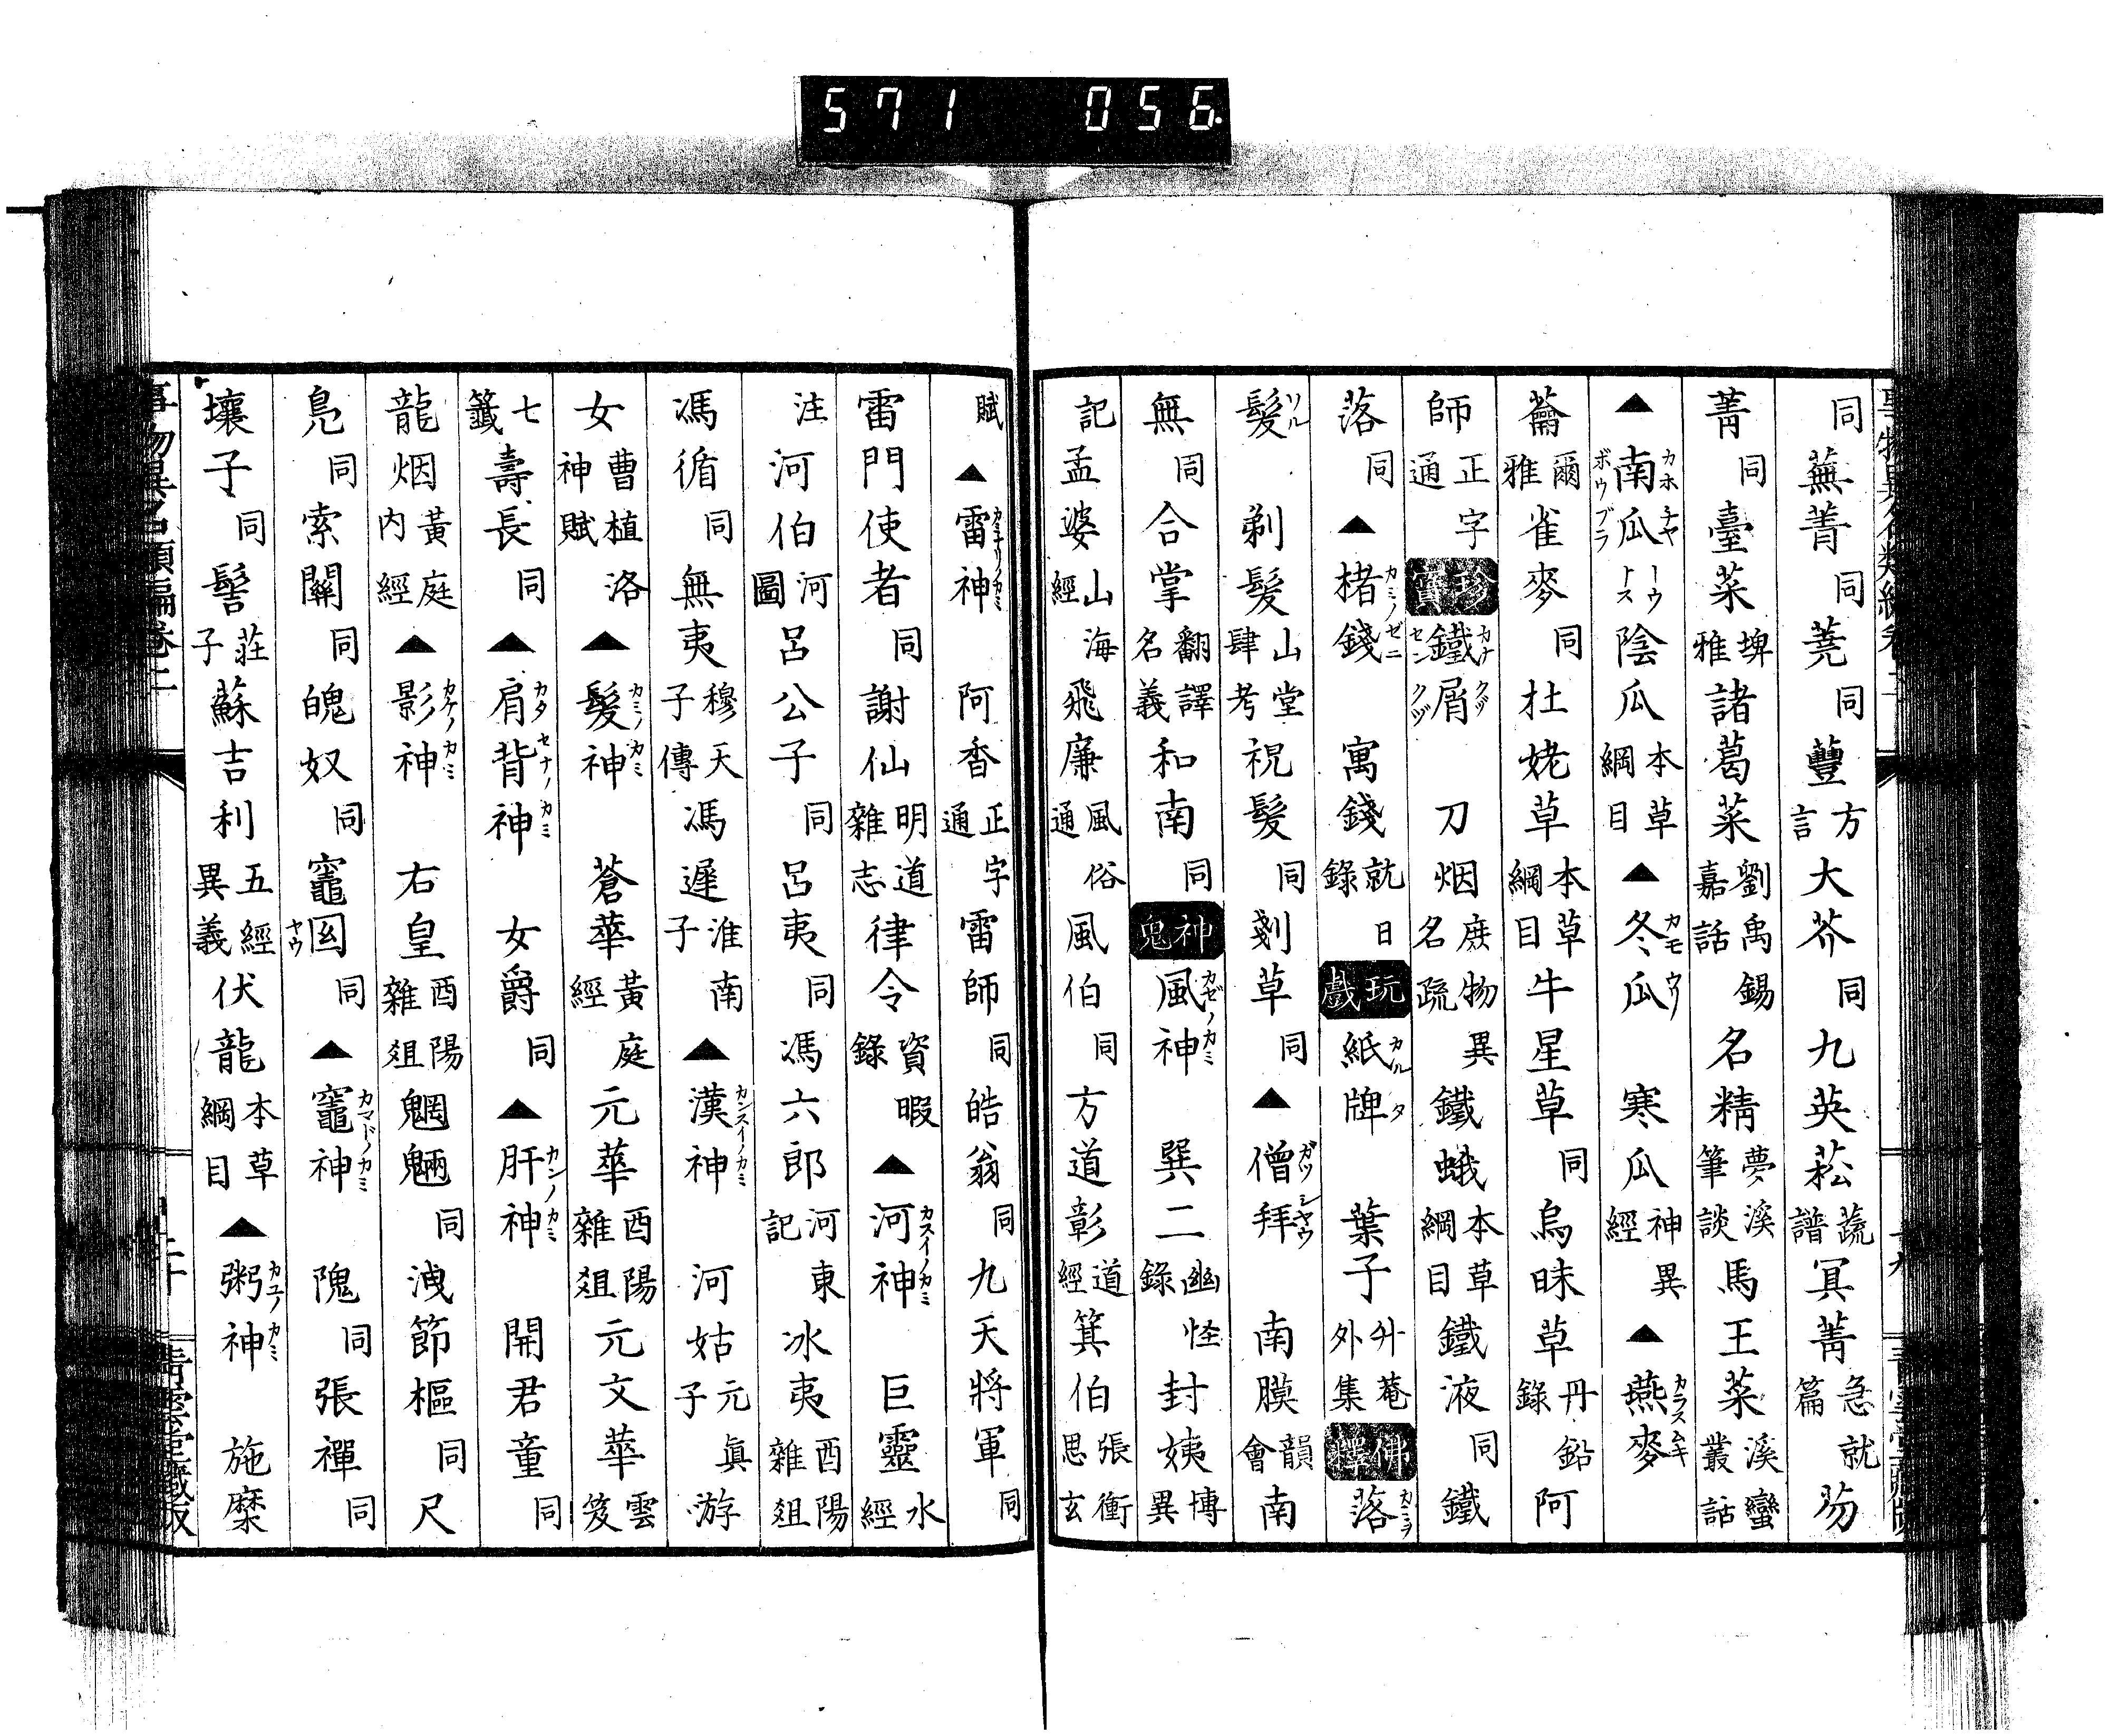 571 056
同蕪菁同蕘同蘴方言大芥同九英菘蔬譜冥菁急就篇芴
菁同臺菜埤雅諸葛菜劉禹錫嘉話名精夢溪筆談馬王菜溪蠻叢話
▲南瓜カホチヤボウブラトウナス陰瓜本草綱目▲冬瓜カモウリ寒瓜神異經▲燕麥カラスムキ
蘥爾雅雀麥同杜姥草本草綱目牛星草同烏昧草丹鉛錄阿
師正字通珍寶鐵屑カナクヅセンクヅ刀烟庶物異名疏鐵蛾本草綱目鐵液同鐵
落同▲楮錢カミノゼニ寓錢就日錄玩戲紙牌カルタ葉子升菴外集佛釋落カミヲ
髮ソル剃髮山堂肆考祝髮同剗草同▲僧拜ガツシヤウ南膜韻會南
無同合掌翻譯名義和南同神鬼風神カゼノカミ巽二幽怪錄封姨博異
記孟婆山海經飛廉風俗通風伯同方道彰道經箕伯張衡思玄
賦▲雷神カミナリノカミ阿香正字通雷師同皓翁同九天將軍同
雷門使者同謝仙明道雜志律令資暇錄▲河神カスイノカミ巨靈水經
注河伯河圖呂公子同呂夷同馮六郎河東記冰夷酉陽雜俎
馮循同無夷穆天子傳馮遲淮南子▲漢神カンスイノカミ河姑元眞子游
女曹植洛神賦▲髮神カミノカミ蒼華黃庭經元華酉陽雜俎元文華雲笈
七籤壽長同▲肩背神カタセナノカミ女爵同▲肝神カンノカミ開君童同
龍烟黃庭內經▲影神カゲノカミ右皇酉陽雜俎魍魎同洩節樞同尺
鳧同索關同魄奴同竈㘝ヤウ同▲竈神カマドノカミ隗同張禪同
壤子同髻莊子蘇吉利五經異義伏龍本草綱目▲粥神カユノカミ施糜
事物異名類編卷二